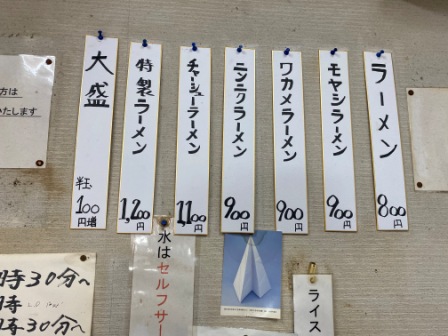 ラーメン 800円
モヤシラーメン 900円
ワカメラーメン 900円
ニンニクラーメン 900円
チャーシューラーメン 1,100円
特製ラーメン 1,200円
大盛 半玉 100円増
方は
いたします
水はセルフサー
ライス
時30分へ
時
時30分へ